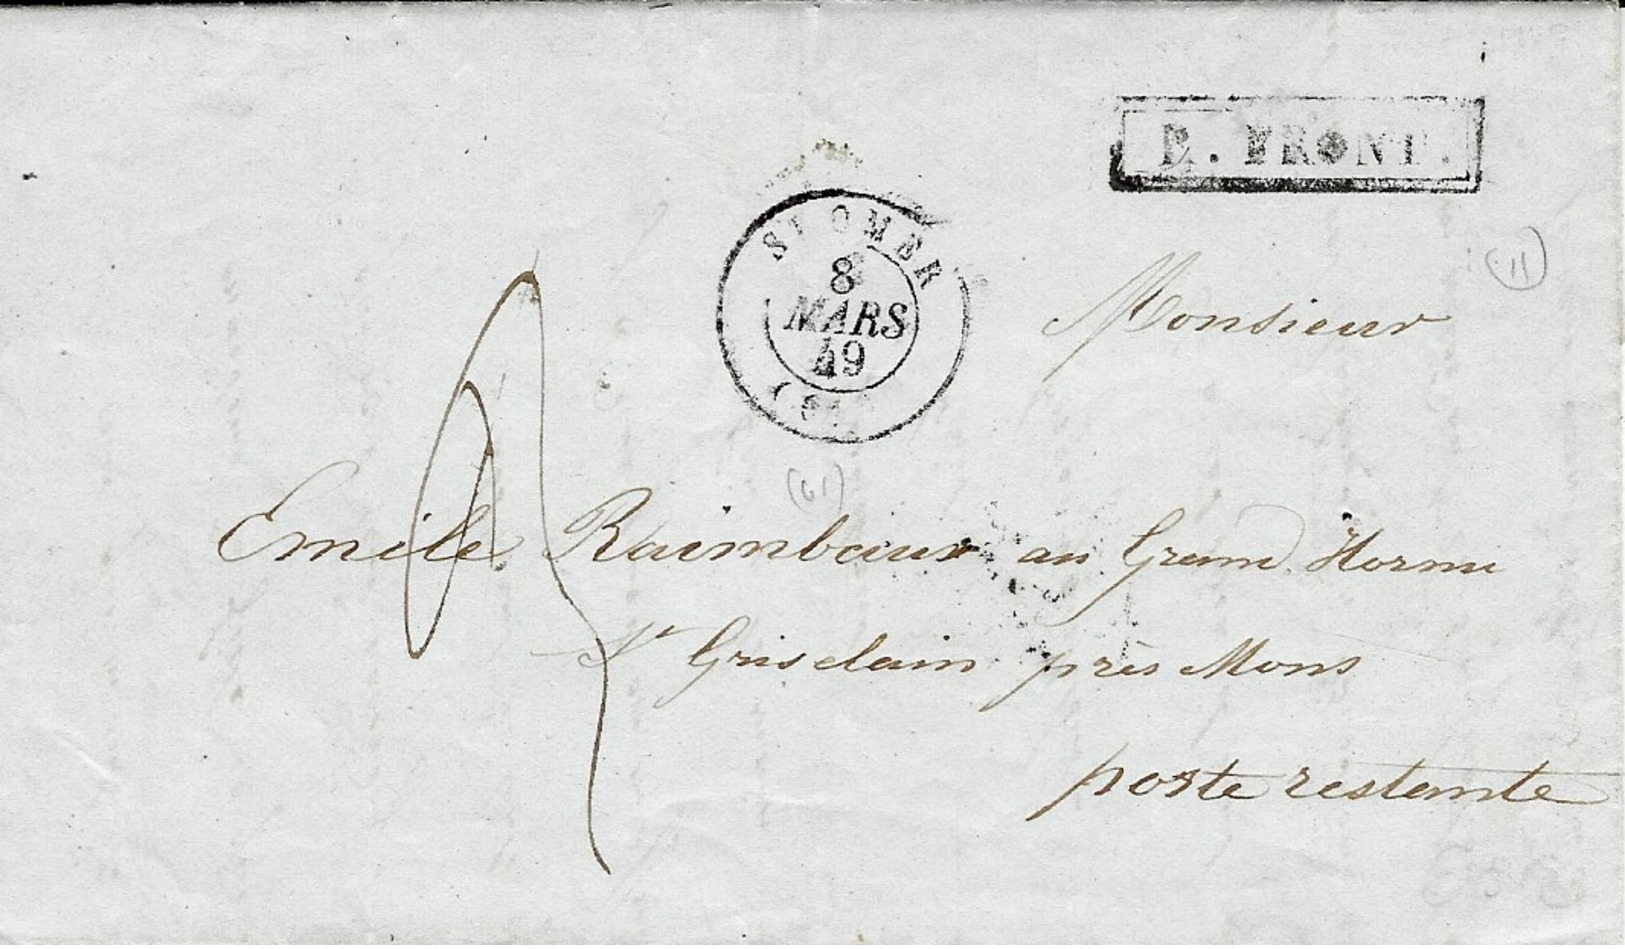 R. FRONT.
ST OMER
8
MARS
49
(11)
Monsieur
(61)
Emile Raimbaux au Grand Hornu
St Griselain près Mons
poste restante